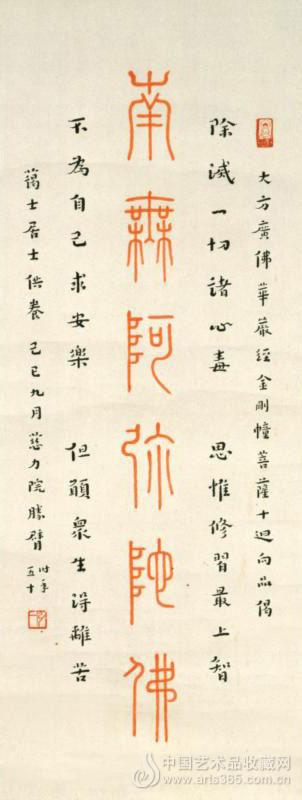 大方廣佛華嚴經金剛幢菩薩十迴向品偈
除滅一切諸心毒 思惟修習最上智
南無阿彌陀佛
不為自己求安樂 但願眾生得離苦
藹士居士供養 己巳九月慈力院勝臂 時年五十
中国艺术品收藏网
www.arts365.com.cn